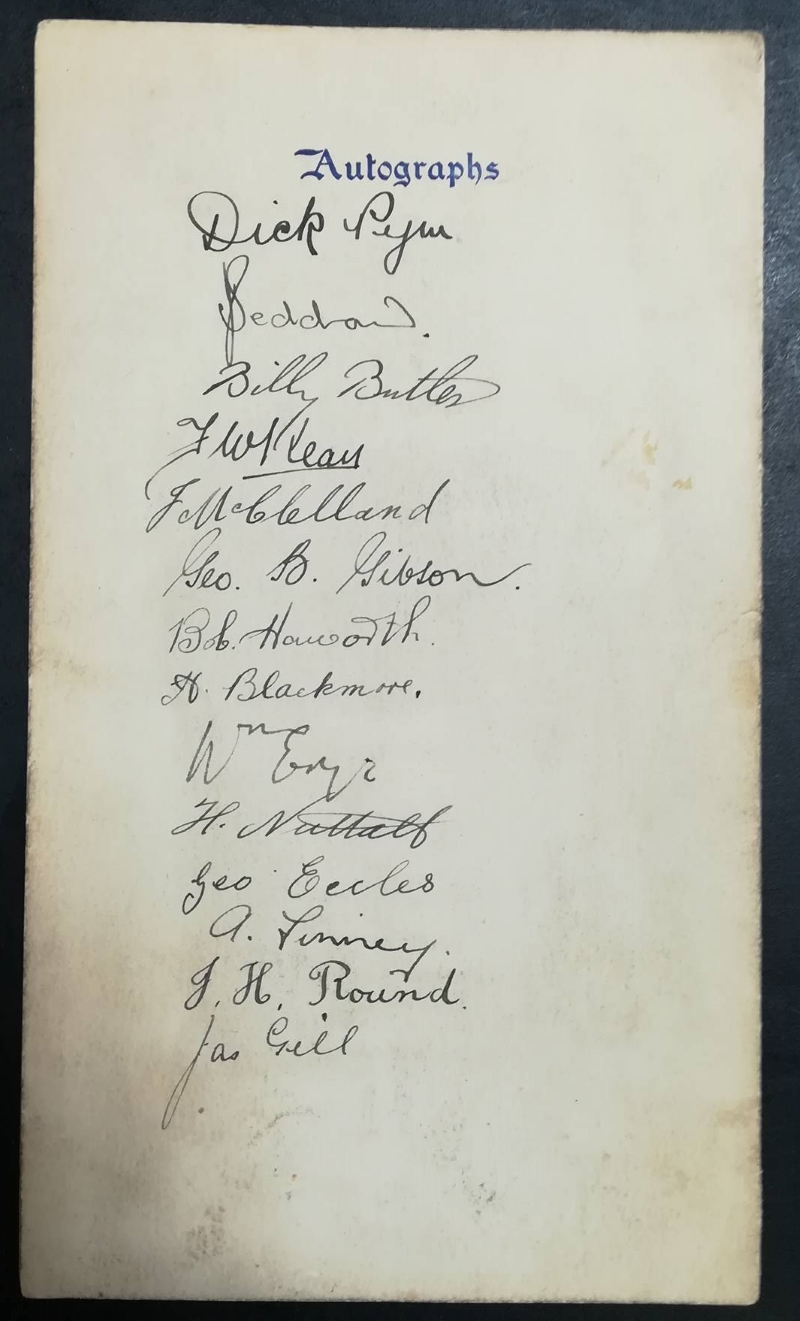 Autographs
Dick Pym
Seddon.
Billy Butler
F W Kean
J McClelland
Geo. B. Gibson.
Bob. Haworth.
H. Blackmore.
Wm
H. Nuttall
Geo Eccles
A. Finney.
J. H. Round.
Jas Gill